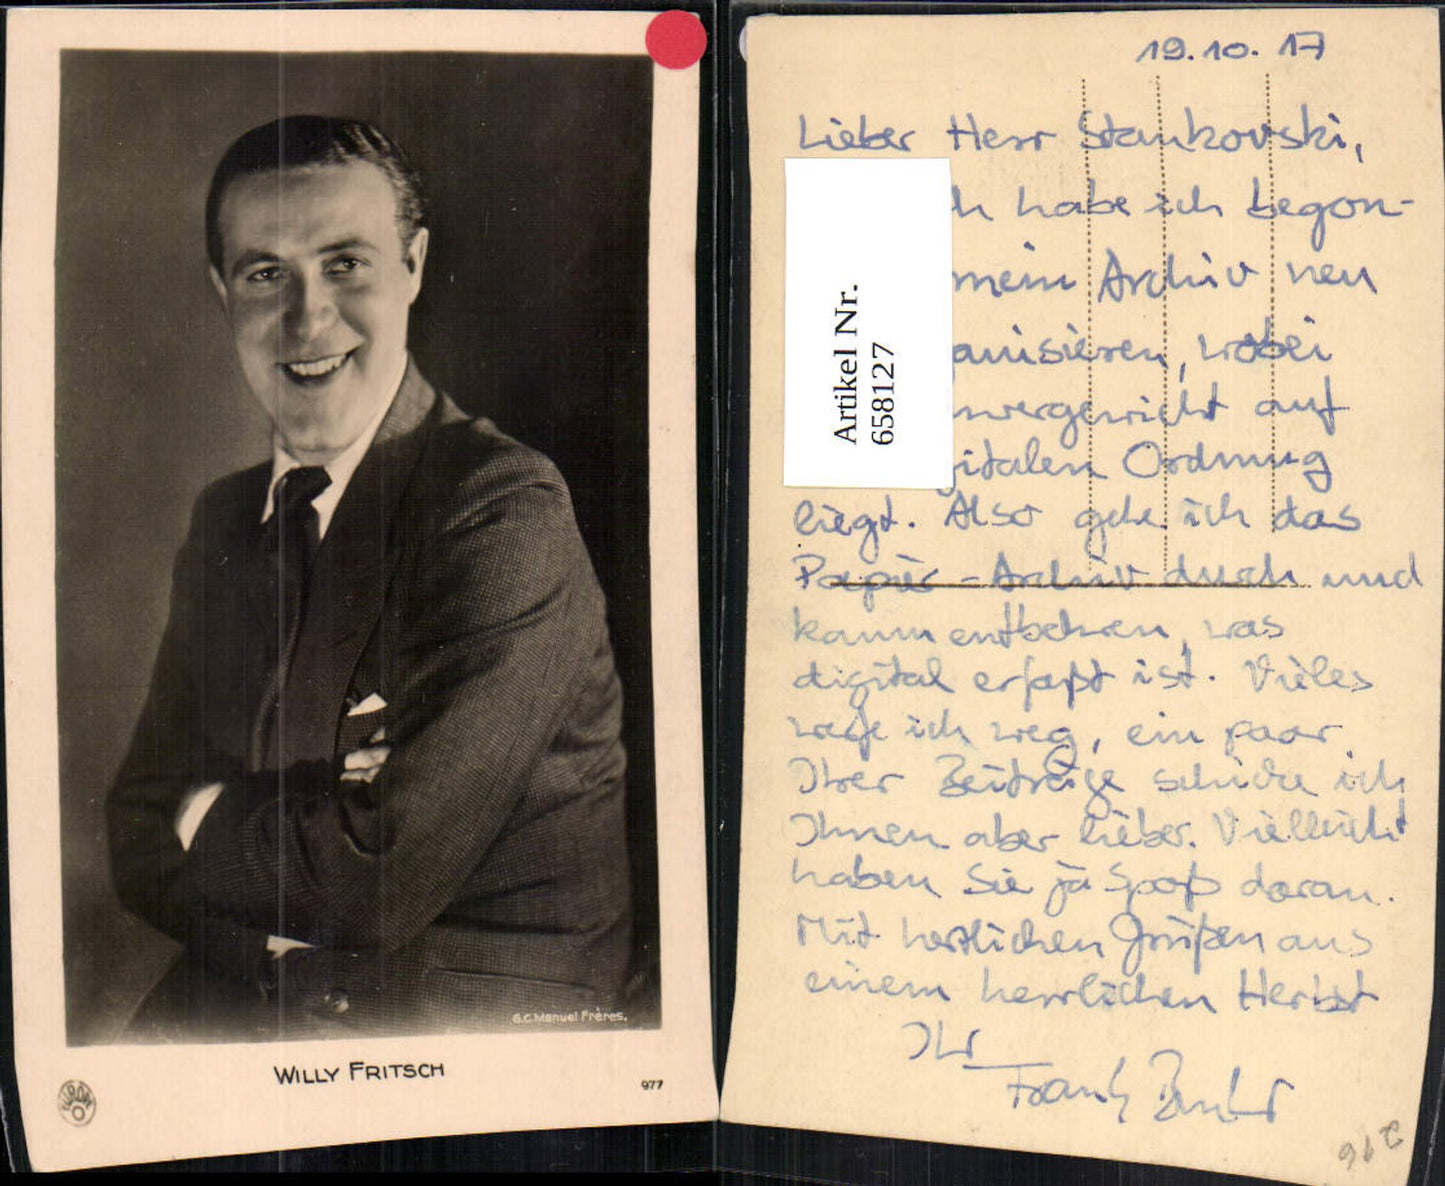 G.C. Manuel Frères.
WILLY FRITSCH
977
EUROPE
19.10.17
Lieber Herr Stankovski,
h habe ich begon-
mein Archiv neu
anisieren, wobei
wergewicht auf
gitalen Ordnung
liegt. Also gehe ich das
Papier-Archiv durch und
kann entbehren, was
digital erfaßt ist. Vieles
werfe ich weg, ein paar
Ihrer Beiträge schicke ich
Ihnen aber lieber. Vielleicht
haben Sie ja Spaß daran.
Mit herzlichen Grüßen aus
einem herrlichen Herbst
Ihr
Frank
Artikel Nr.
658127